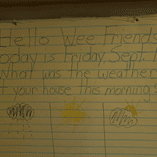 Hello Wee Friends
oday is Friday, Sept.
What was the weather
t your house this morning?